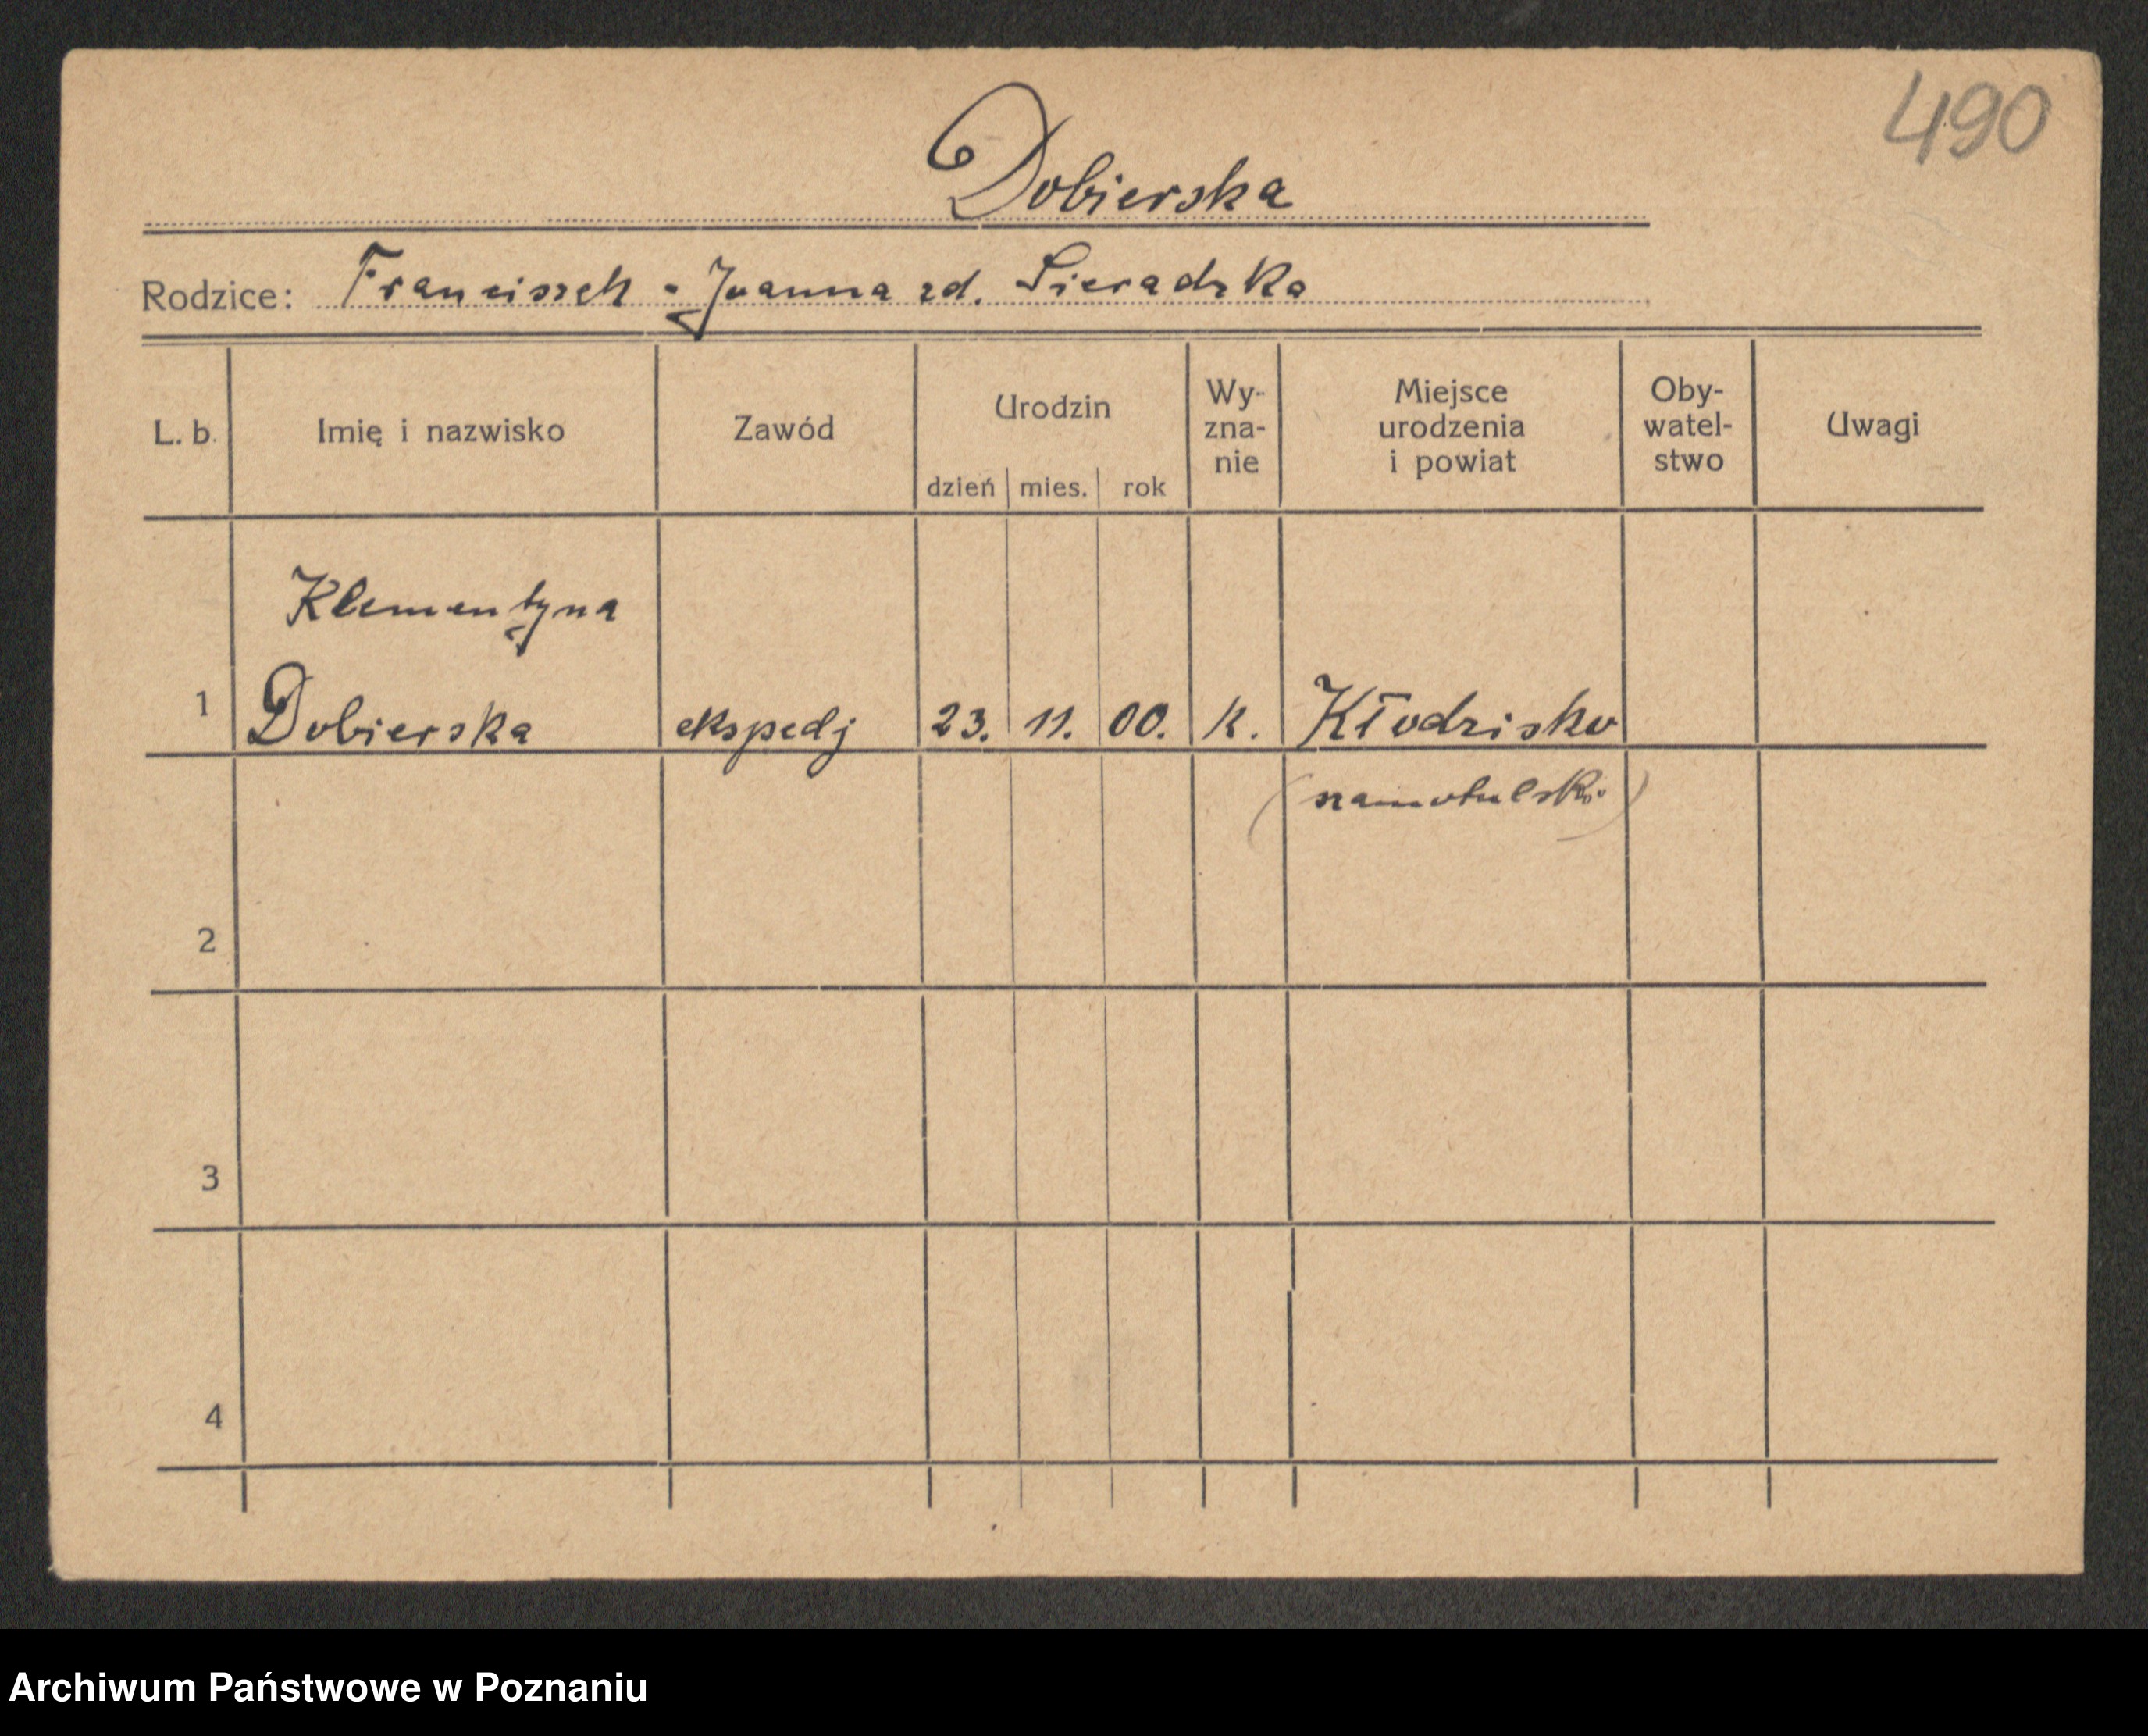 490
Dobierska
Rodzice: Franciszek - Joanna zd. Sieradzka
L. b. Imię i nazwisko Zawód Urodzin dzień mies. rok Wy-zna-nie Miejsce urodzenia i powiat Oby-watel-stwo Uwagi
Klementyna
1 Dobierska ekspedj 23. 11. 00. k. Kłodzisko
(szamotulski)
2
3
4
Archiwum Państwowe w Poznaniu